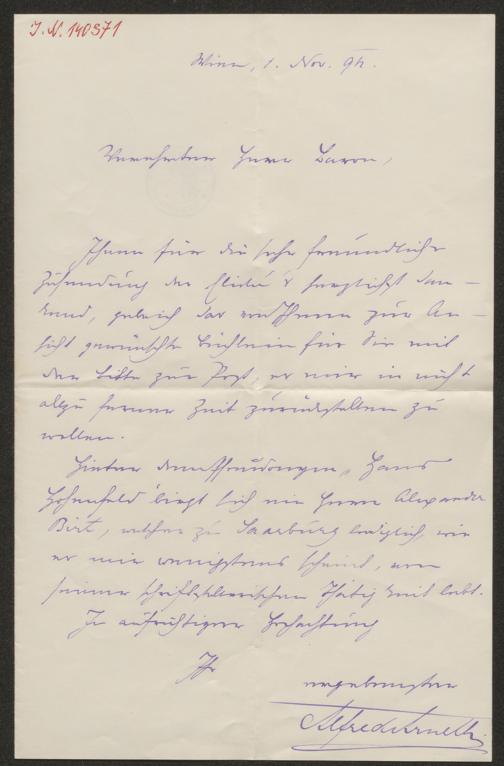 I. N. 140571
Wien, 1. Nov. 94.
Verehrter Herr Baron,
Ihnen für die sehr freundliche
Zusendung der Cliché's herzlichst dan-
kend, gebe ich das von Ihnen zur An-
sicht gewünschte Büchlein für Sie mit
der Bitte zur Post, es mir in nicht
allzu ferner Zeit zurückstellen zu
wollen.
Hinter dem Pseudonym, Hans
Hohenfeld birgt sich ein Herr Alexander
Birt, welcher zu Saarburg kläglich, wie
es mir wenigstens scheint, von
seiner schriftstellerischen Thätigkeit lebt.
In aufrichtiger Hochachtung
Ihr
ergebenster
Alfred Arneth.